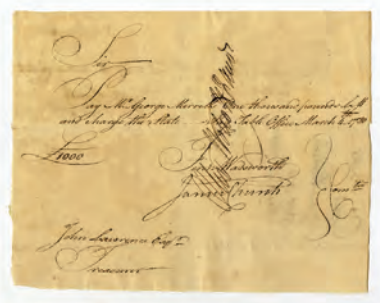 Sir
Pay Mr George Merrell One thousand pounds
and charge the State Table Office March 1780
£1000
Wadsworth
James Church
Comtee
John Lawrence Esqr
Treasurer